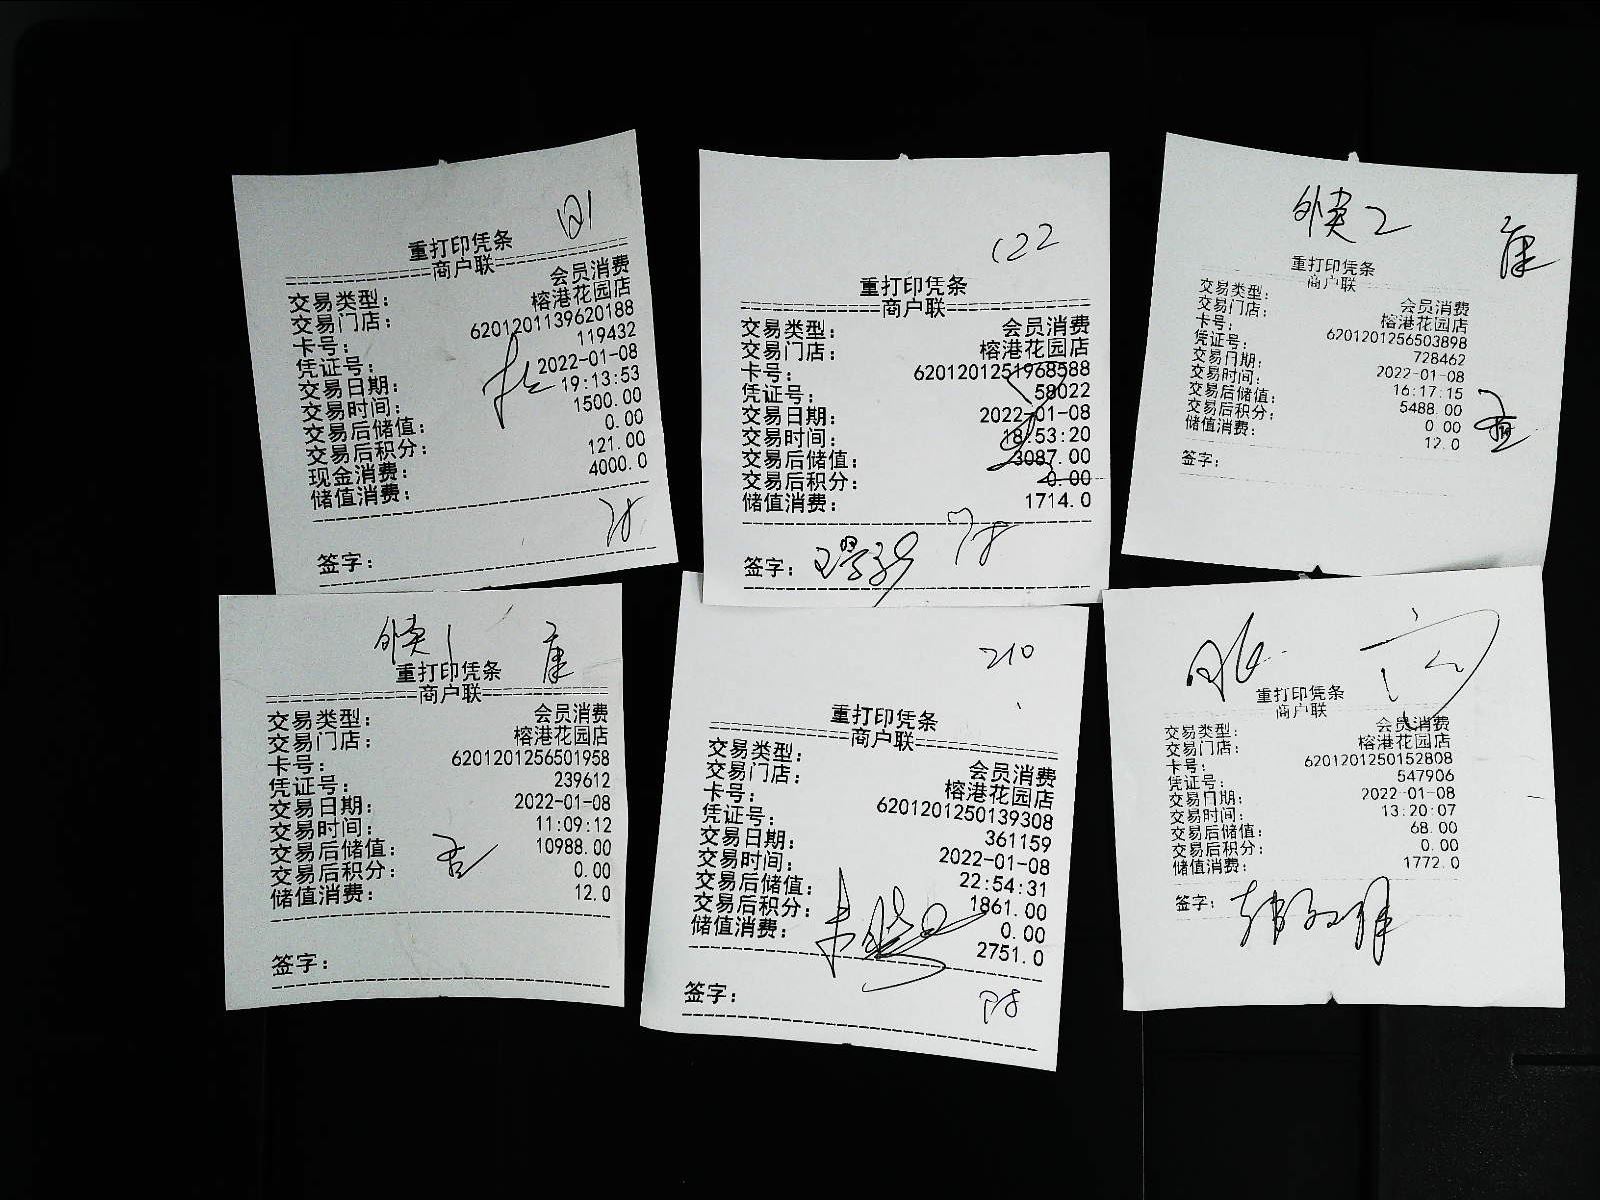 重打印凭条
商户联
交易类型： 会员消费
交易门店： 榕港花园店
卡号： 6201201139620188
凭证号： 119432
交易日期： 2022-01-08
交易时间： 19:13:53
交易后储值： 1500.00
交易后积分： 0.00
现金消费： 121.00
储值消费： 4000.0
签字：
122
重打印凭条
商户联
交易类型： 会员消费
交易门店： 榕港花园店
卡号： 6201201251968588
凭证号： 58022
交易日期： 2022-01-08
交易时间： 18:53:20
交易后储值： 3087.00
交易后积分： 0.00
储值消费： 1714.0
签字：
外卖2 康
重打印凭条
商户联
交易类型： 会员消费
交易门店： 榕港花园店
卡号： 6201201256503898
凭证号： 728462
交易日期： 2022-01-08
交易时间： 16:17:15
交易后储值： 5488.00
交易后积分： 0.00
储值消费： 12.0
签字：
外卖1 康
重打印凭条
商户联
交易类型： 会员消费
交易门店： 榕港花园店
卡号： 6201201256501958
凭证号： 239612
交易日期： 2022-01-08
交易时间： 11:09:12
交易后储值： 10988.00
交易后积分： 0.00
储值消费： 12.0
签字：
210
重打印凭条
商户联
交易类型： 会员消费
交易门店： 榕港花园店
卡号： 6201201250139308
凭证号： 361159
交易日期： 2022-01-08
交易时间： 22:54:31
交易后储值： 1861.00
交易后积分： 0.00
储值消费： 2751.0
签字：
重打印凭条
商户联
交易类型： 会员消费
交易门店： 榕港花园店
卡号： 6201201250152808
凭证号： 547906
交易日期： 2022-01-08
交易时间： 13:20:07
交易后储值： 68.00
交易后积分： 0.00
储值消费： 1772.0
签字：